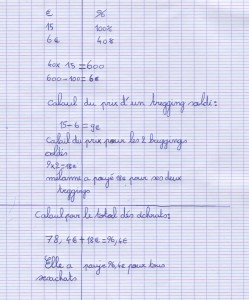 € %
15 100%
6€ 40%
40x 15 = 600
600 - 100 = 6€
Calcul du prix d'un tregging soldé:
15-6 = 9€
Calcul du prix pour les 2 treggings
soldés
9x2 = 18€
mélanie a payé 18€ pour ses deux
treggings
Calcul par le total des achats:
78,4€ + 18€ = 96,4€
Elle a payé 96,4€ pour tous
ses achats